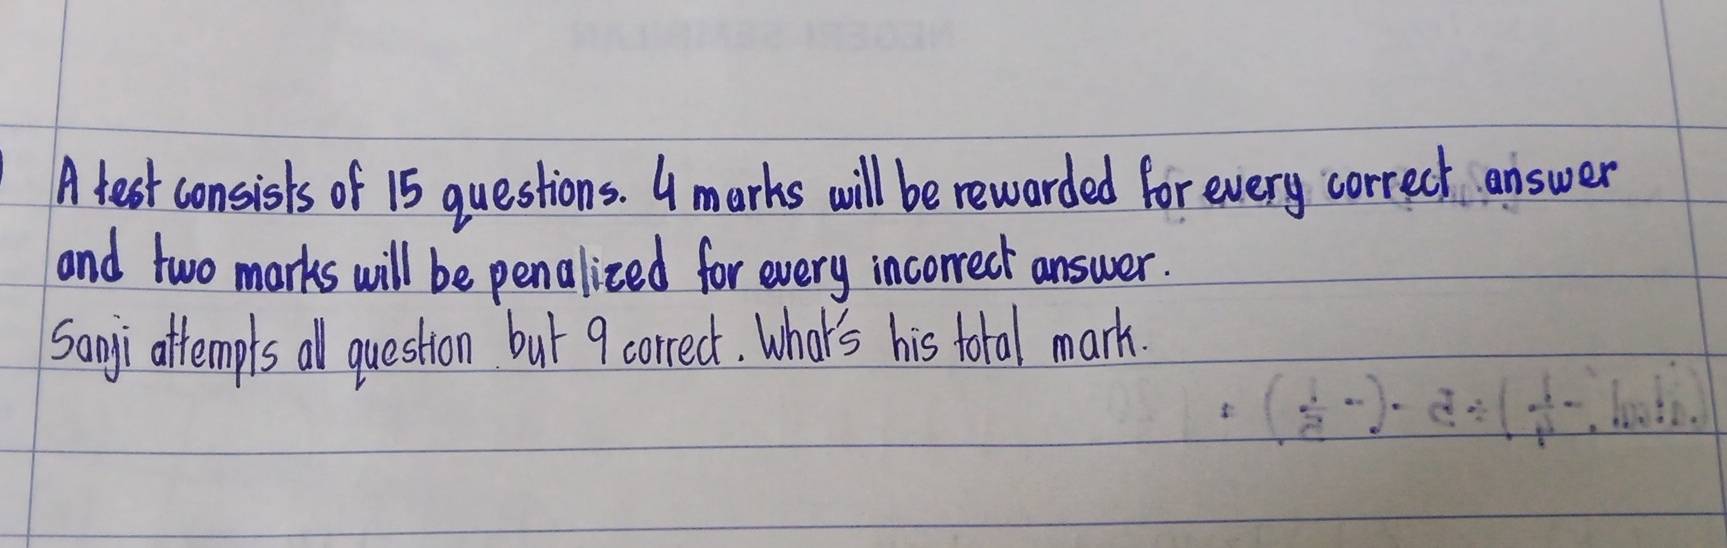 A test consists of 15 questions. 4 marks will be rewarded for every correct answer
and two marks will be penalized for every incorrect answer.
Sanji attempts all question but 9 correct. What's his total mark.